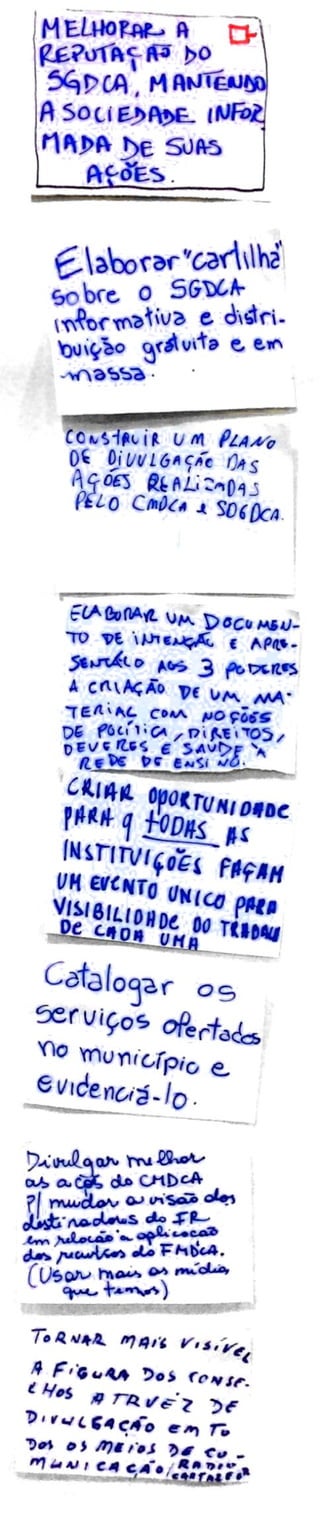 MELHORAR A
REPUTAÇÃO DO
SGDCA, MANTENDO
A SOCIEDADE INFOR
MADA DE SUAS
AÇÕES.
Elaborar "cartilha"
sobre o SGDCA
informativa e distri-
buição gratuita e em
massa.
CONSTRUIR UM PLANO
DE DIVULGAÇÃO DAS
AÇÕES REALIZADAS
PELO CMDCA e SDGDCA.
ELABORAR UM DOCUMEN-
TO DE INTENÇÃO E APRE-
SENTÁLO AOS 3 PODERES
A CRIAÇÃO DE UM MA-
TERIAL COM NOÇÕES
DE POLÍTICA, DIREITOS,
DEVERES E SAÚDE À
REDE DE ENSINO.
CRIAR OPORTUNIDADE
PARA q TODAS AS
INSTITUIÇÕES FAÇAM
UM EVENTO UNICO PARA
VISIBILIDADE DO TRABALH
DE CADA UMA
Catalogar os
serviços ofertados
no município e
evidenciá-lo.
Divulgar melhor
as ações do CMDCA
P/ mudar a visão dos
destinadores do IR
em relação a aplicação
dos recursos do FMDCA.
(Usar mais as mídia
que temos)
TORNAR MAIS VISÍVEL
A FIGURA DOS CONSE-
LHOS ATRVÉZ DE
DIVULGAÇÃO EM TO
DOS OS MEIOS DE CO-
MUNICAÇÃO/RADIO